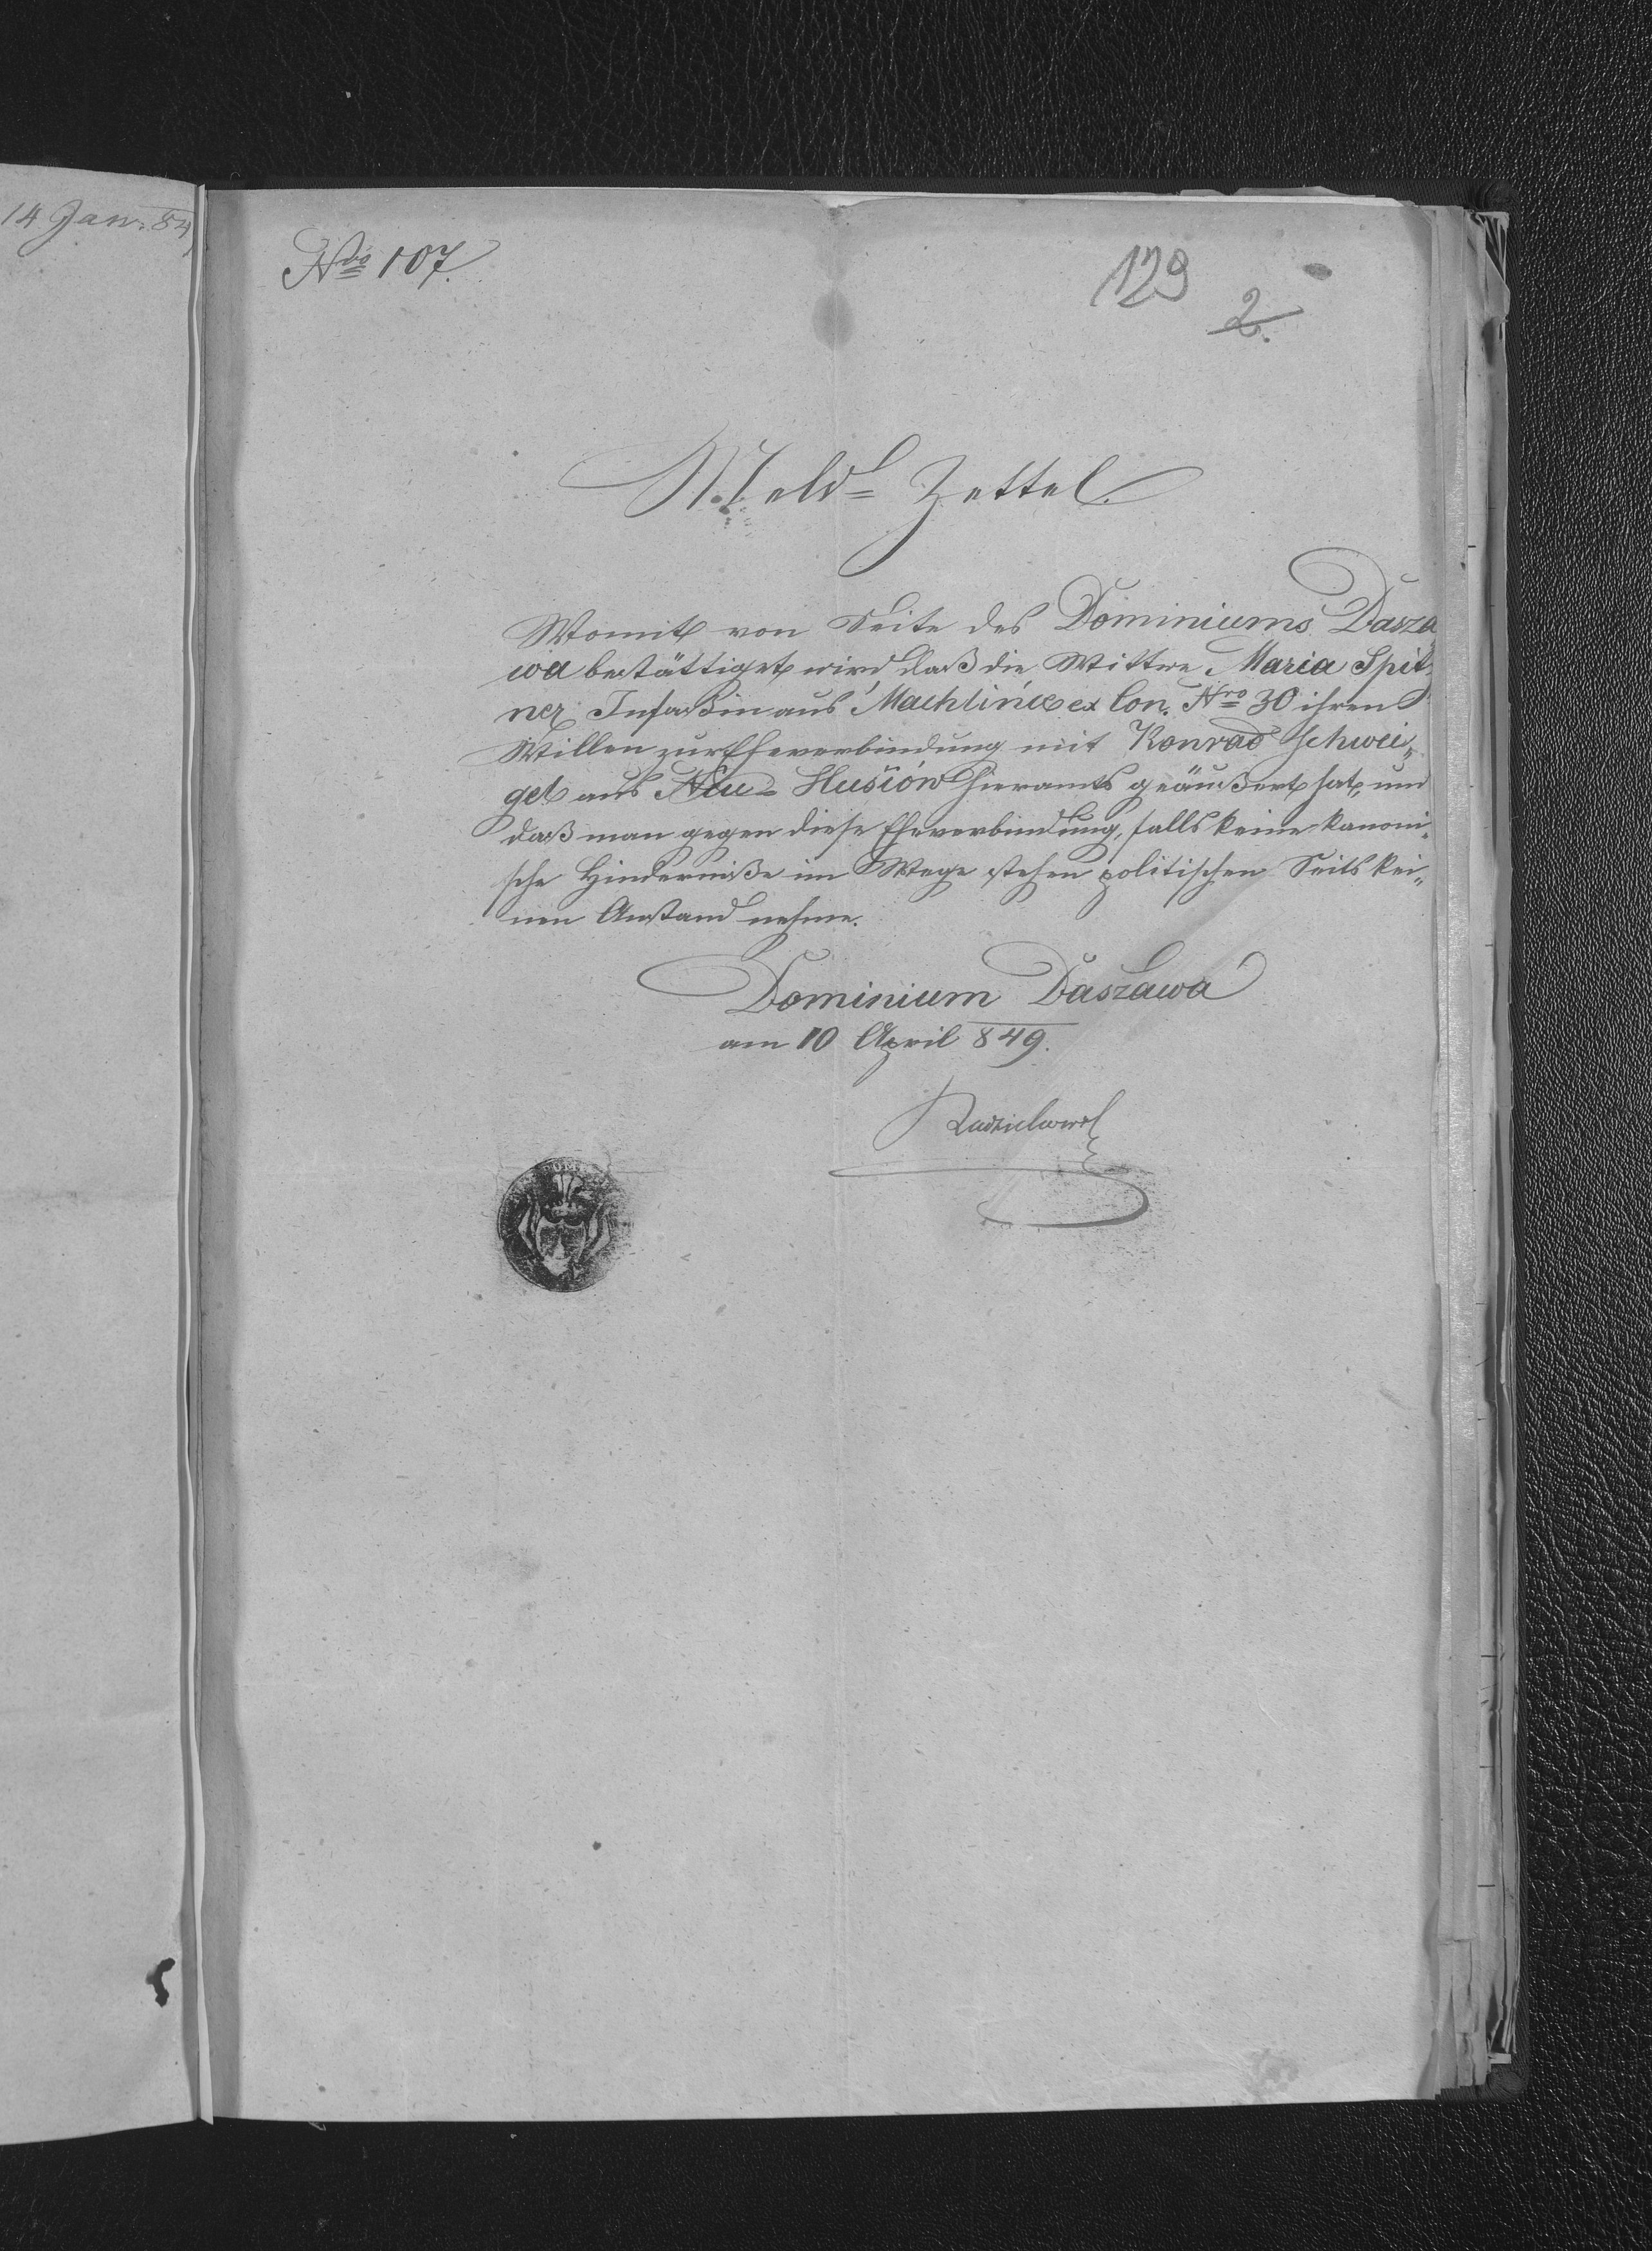 14 Jan. 84
Nro 107.
129
2.
Meld= Zettel.
Womit von Seite des Dominiums Dasza
wa bestättiget wird daß die Wittwe Maria Spit
ner Insaßin aus Machliniec ex Con. Nro 30 ihren
Willen zur Eheverbindung mit Konrad Schwei„
get aus Neu= Husiów hieramts geäußert hat, und
daß man gegen diese Eheverbindung, falls keine kanoni„
sche Hinderniße im Wege stehen politischen Seits kei„
nen Anstand nehme.
Dominium Daszawa
am 10 April 849.